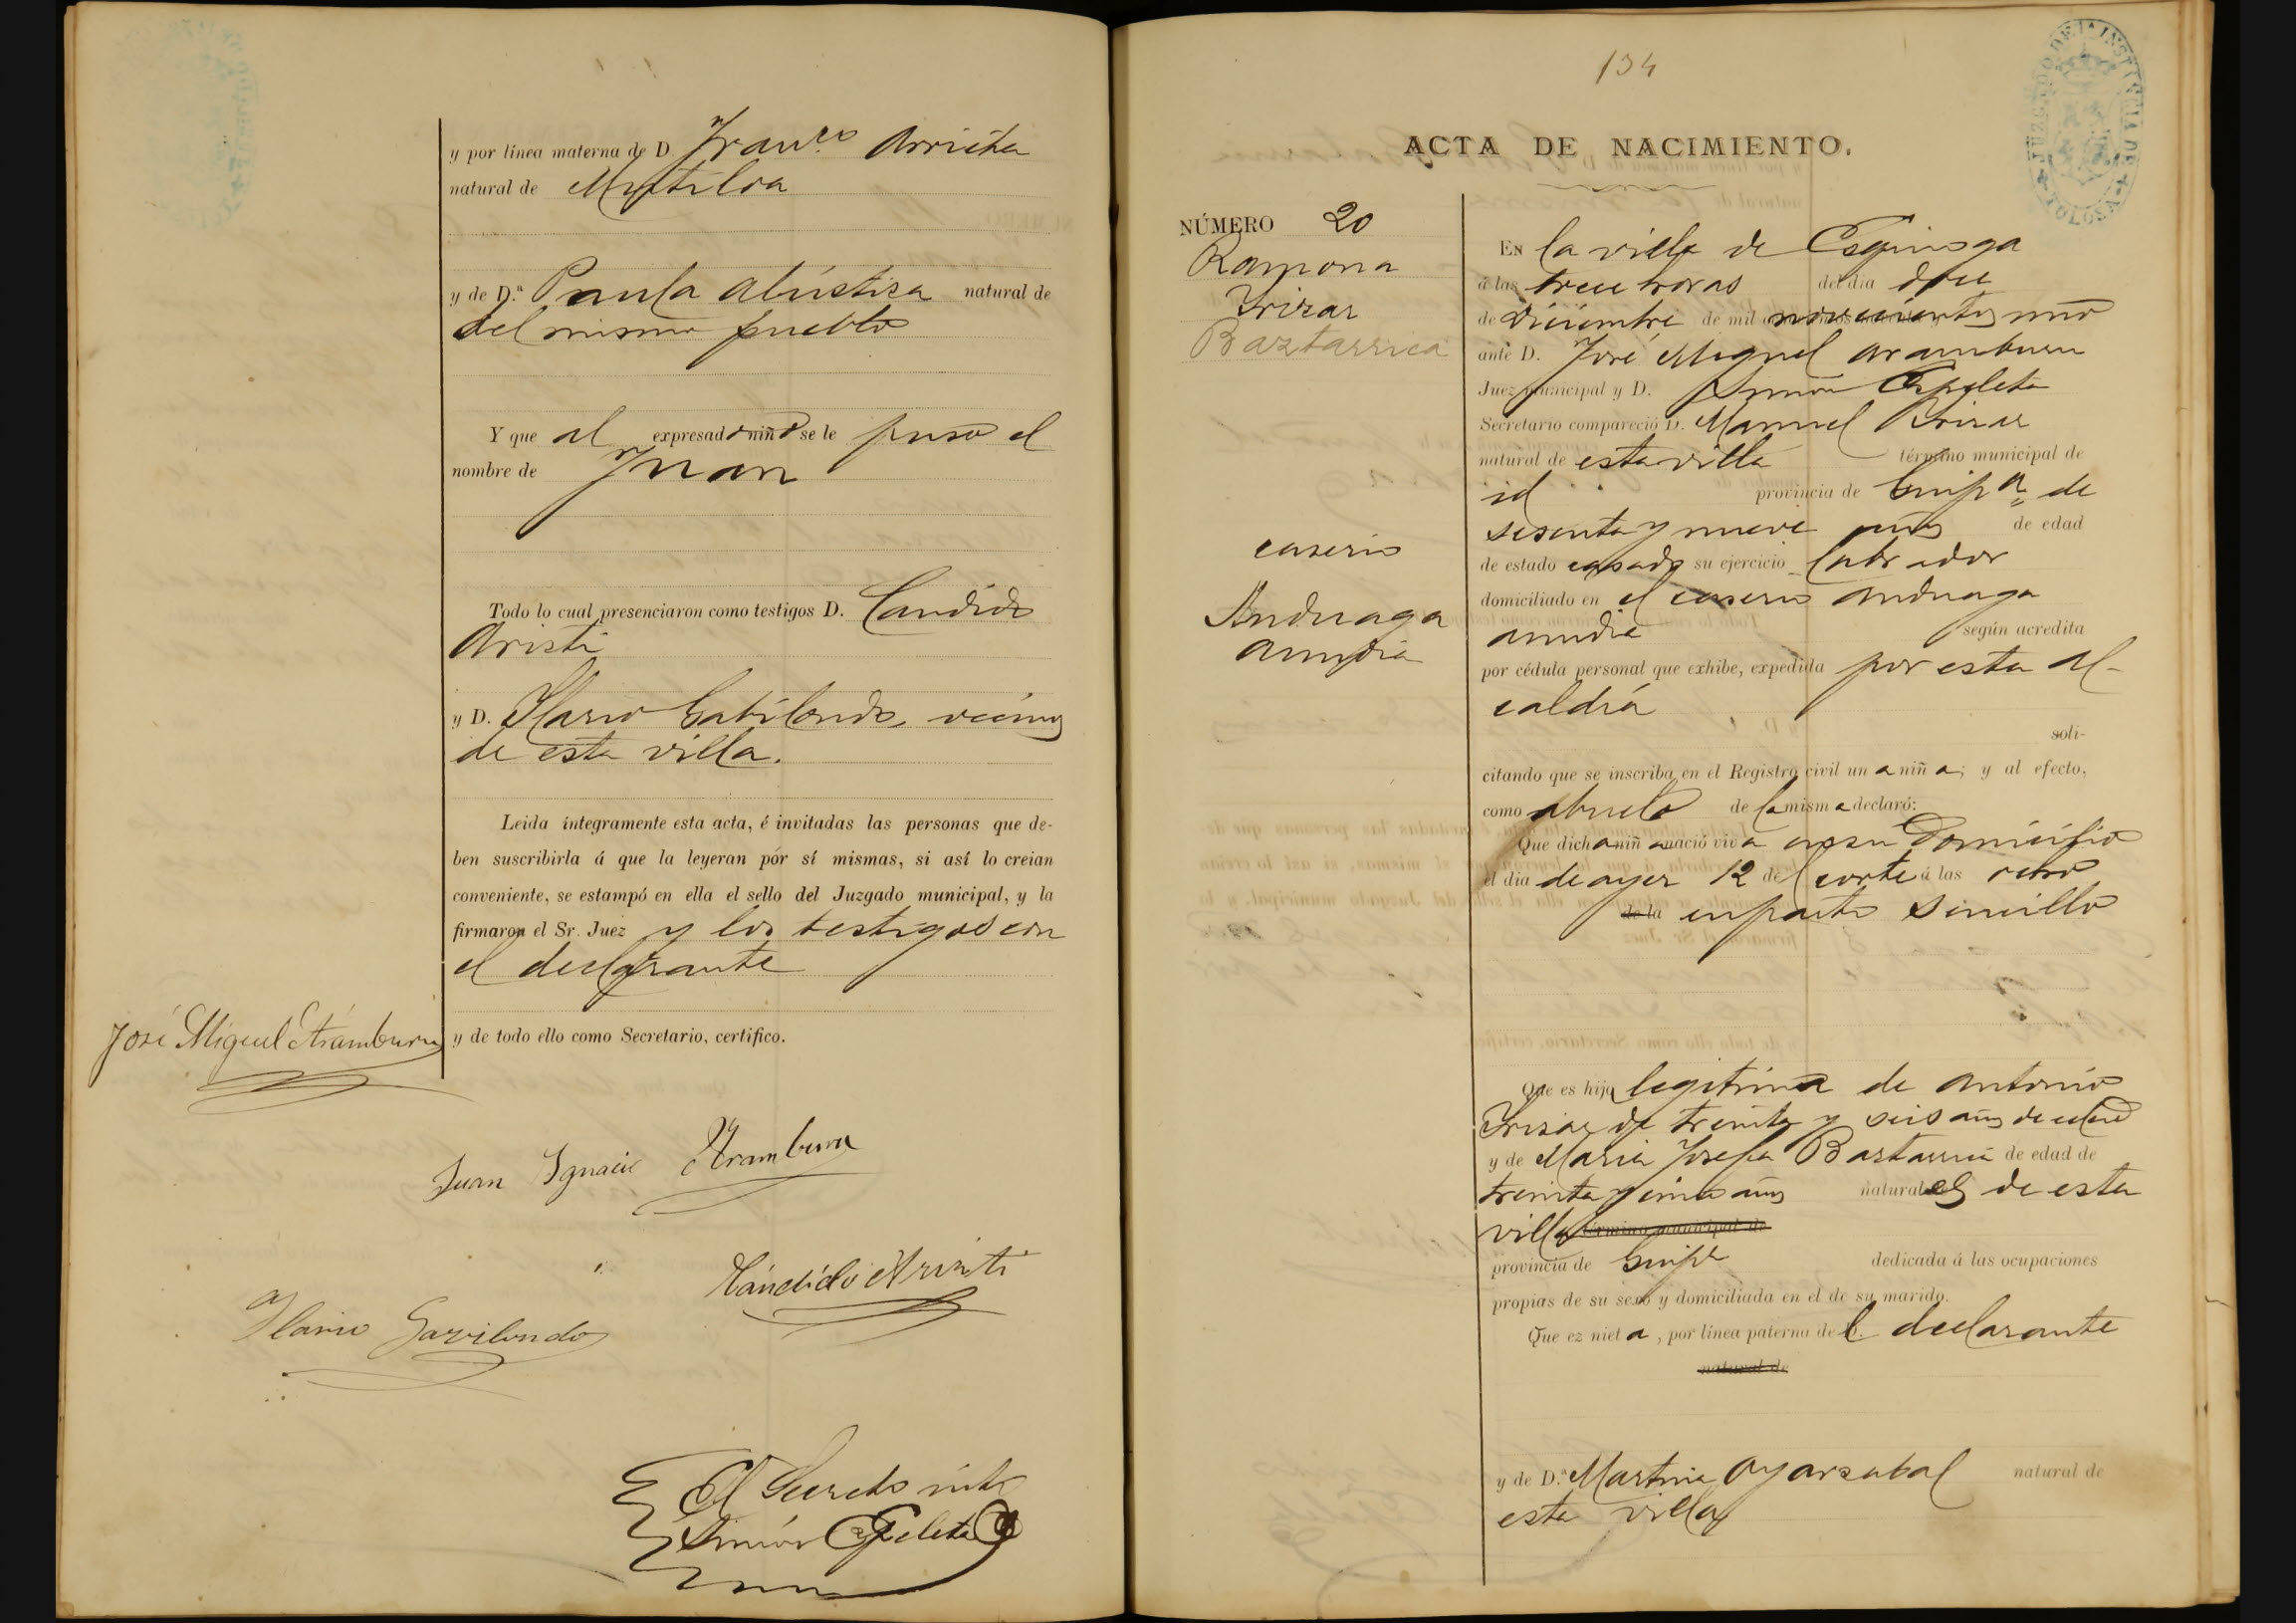 y por línea materna de D. Franco Arrieta
natural de Mutiloa
y de D.ª Paula Alústiza natural de
del mismo pueblo
Y que al expresado niño se le puso el
nombre de Juan
Todo lo cual presenciaron como testigos D. Candido
Aristi
y D. Ilario Gabilondo, vecinos
de esta villa.
Leida íntegramente esta acta, é invitadas las personas que de-
ben suscribirla á que la leyeran por sí mismas, si así lo creian
conveniente, se estampó en ella el sello del Juzgado municipal, y la
firmaron el Sr. Juez y los testigos con
el declarante
y de todo ello como Secretario, certifico.
José Miguel Aramburu
Juan Ignacio Aramburu
Cándido Aristi
Ilario Gavilondo
El Secreto into
Simón Egileta
134
JUZGADO DE 1ª INSTANCIA DE TOLOSA
ACTA DE NACIMIENTO.
NÚMERO 20
Ramona
Irizar
Baztarrica
caserio
Anduaga
aundia
EN la villa de Ezquioga
á las trece horas del dia doce
de Diciembre de mil novecientos uno
ante D. José Miguel Aramburu
Juez municipal y D. Simón Egileta
Secretario compareció D. Manuel Irizar
natural de esta villa término municipal de
id provincia de Guipª de
sesenta y nueve años de edad
de estado casado su ejercicio labrador
domiciliado en el caserio Anduaga
aundia según acredita
por cédula personal que exhibe, expedida por esta Al-
caldía
soli-
citando que se inscriba en el Registro civil una niña; y al efecto,
como abuelo de la misma declaró:
Que dicha niña nació viva en su Domicilio
el dia de ayer 12 del corte á las ocho
de la en parto sencillo
Que es hija legitima de Antonio
Irizar de treinta y seis años de edad
y de Maria Josefa Baztarrica de edad de
treinta y cinco años naturales de esta
villa término municipal de
provincia de Guipª dedicada á las ocupaciones
propias de su sexo y domiciliada en el de su marido.
Que ez nieta, por línea paterna del declarante
natural de
y de D.ª Martina Oyarzabal natural de
esta villa